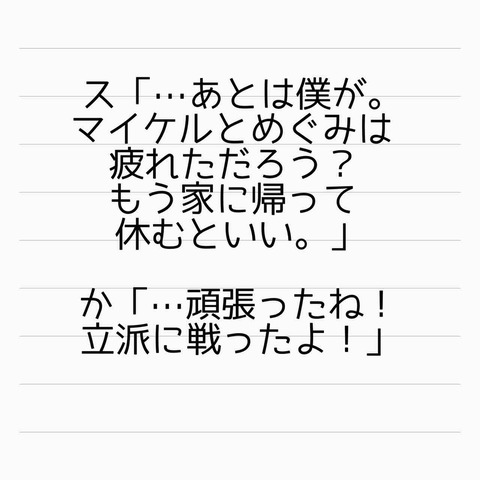 ス「…あとは僕が。
マイケルとめぐみは
疲れただろう？
もう家に帰って
休むといい。」
か「…頑張ったね！
立派に戦ったよ！」